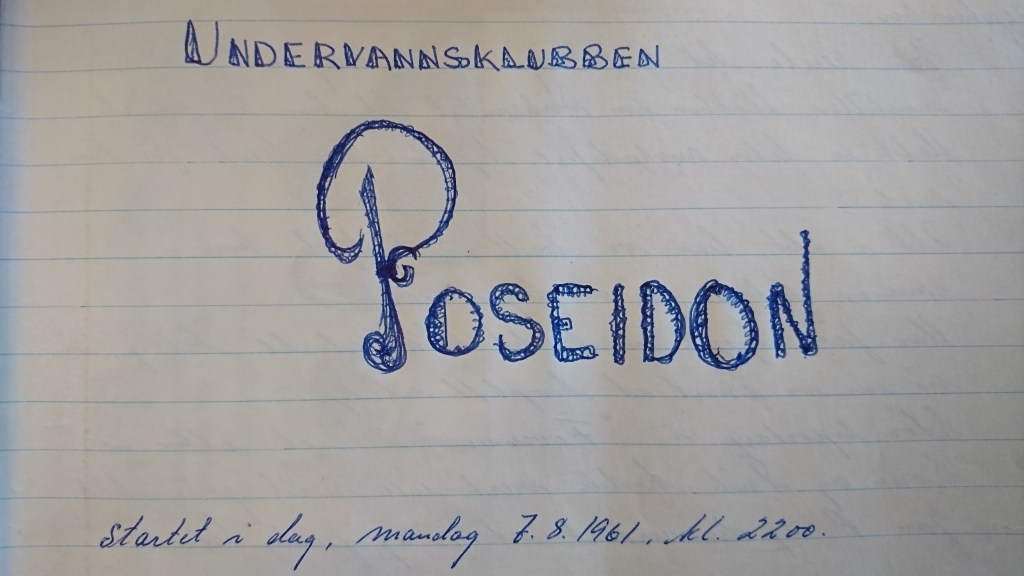 UNDERVANNSKLUBBEN
POSEIDON
Startet i dag, mandag 7.8.1961, kl. 2200.